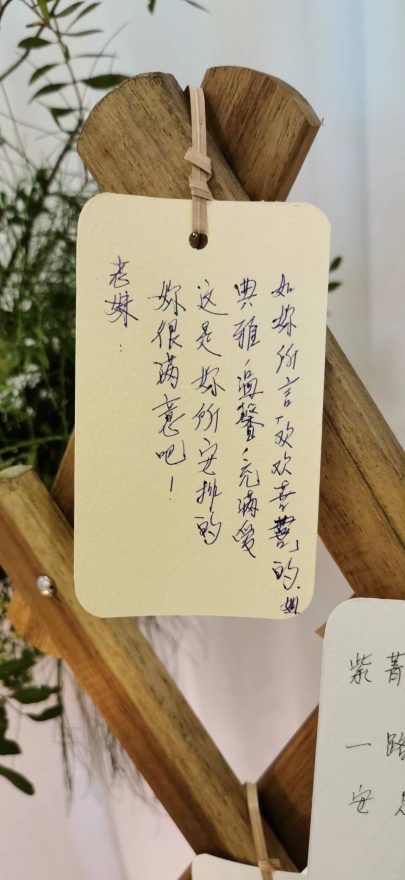 老妹：
妳很满意吧！
这是妳所安排的
典雅、温馨、充满爱
如妳所言，欢欢喜喜的.姐
紫菁
一路
安